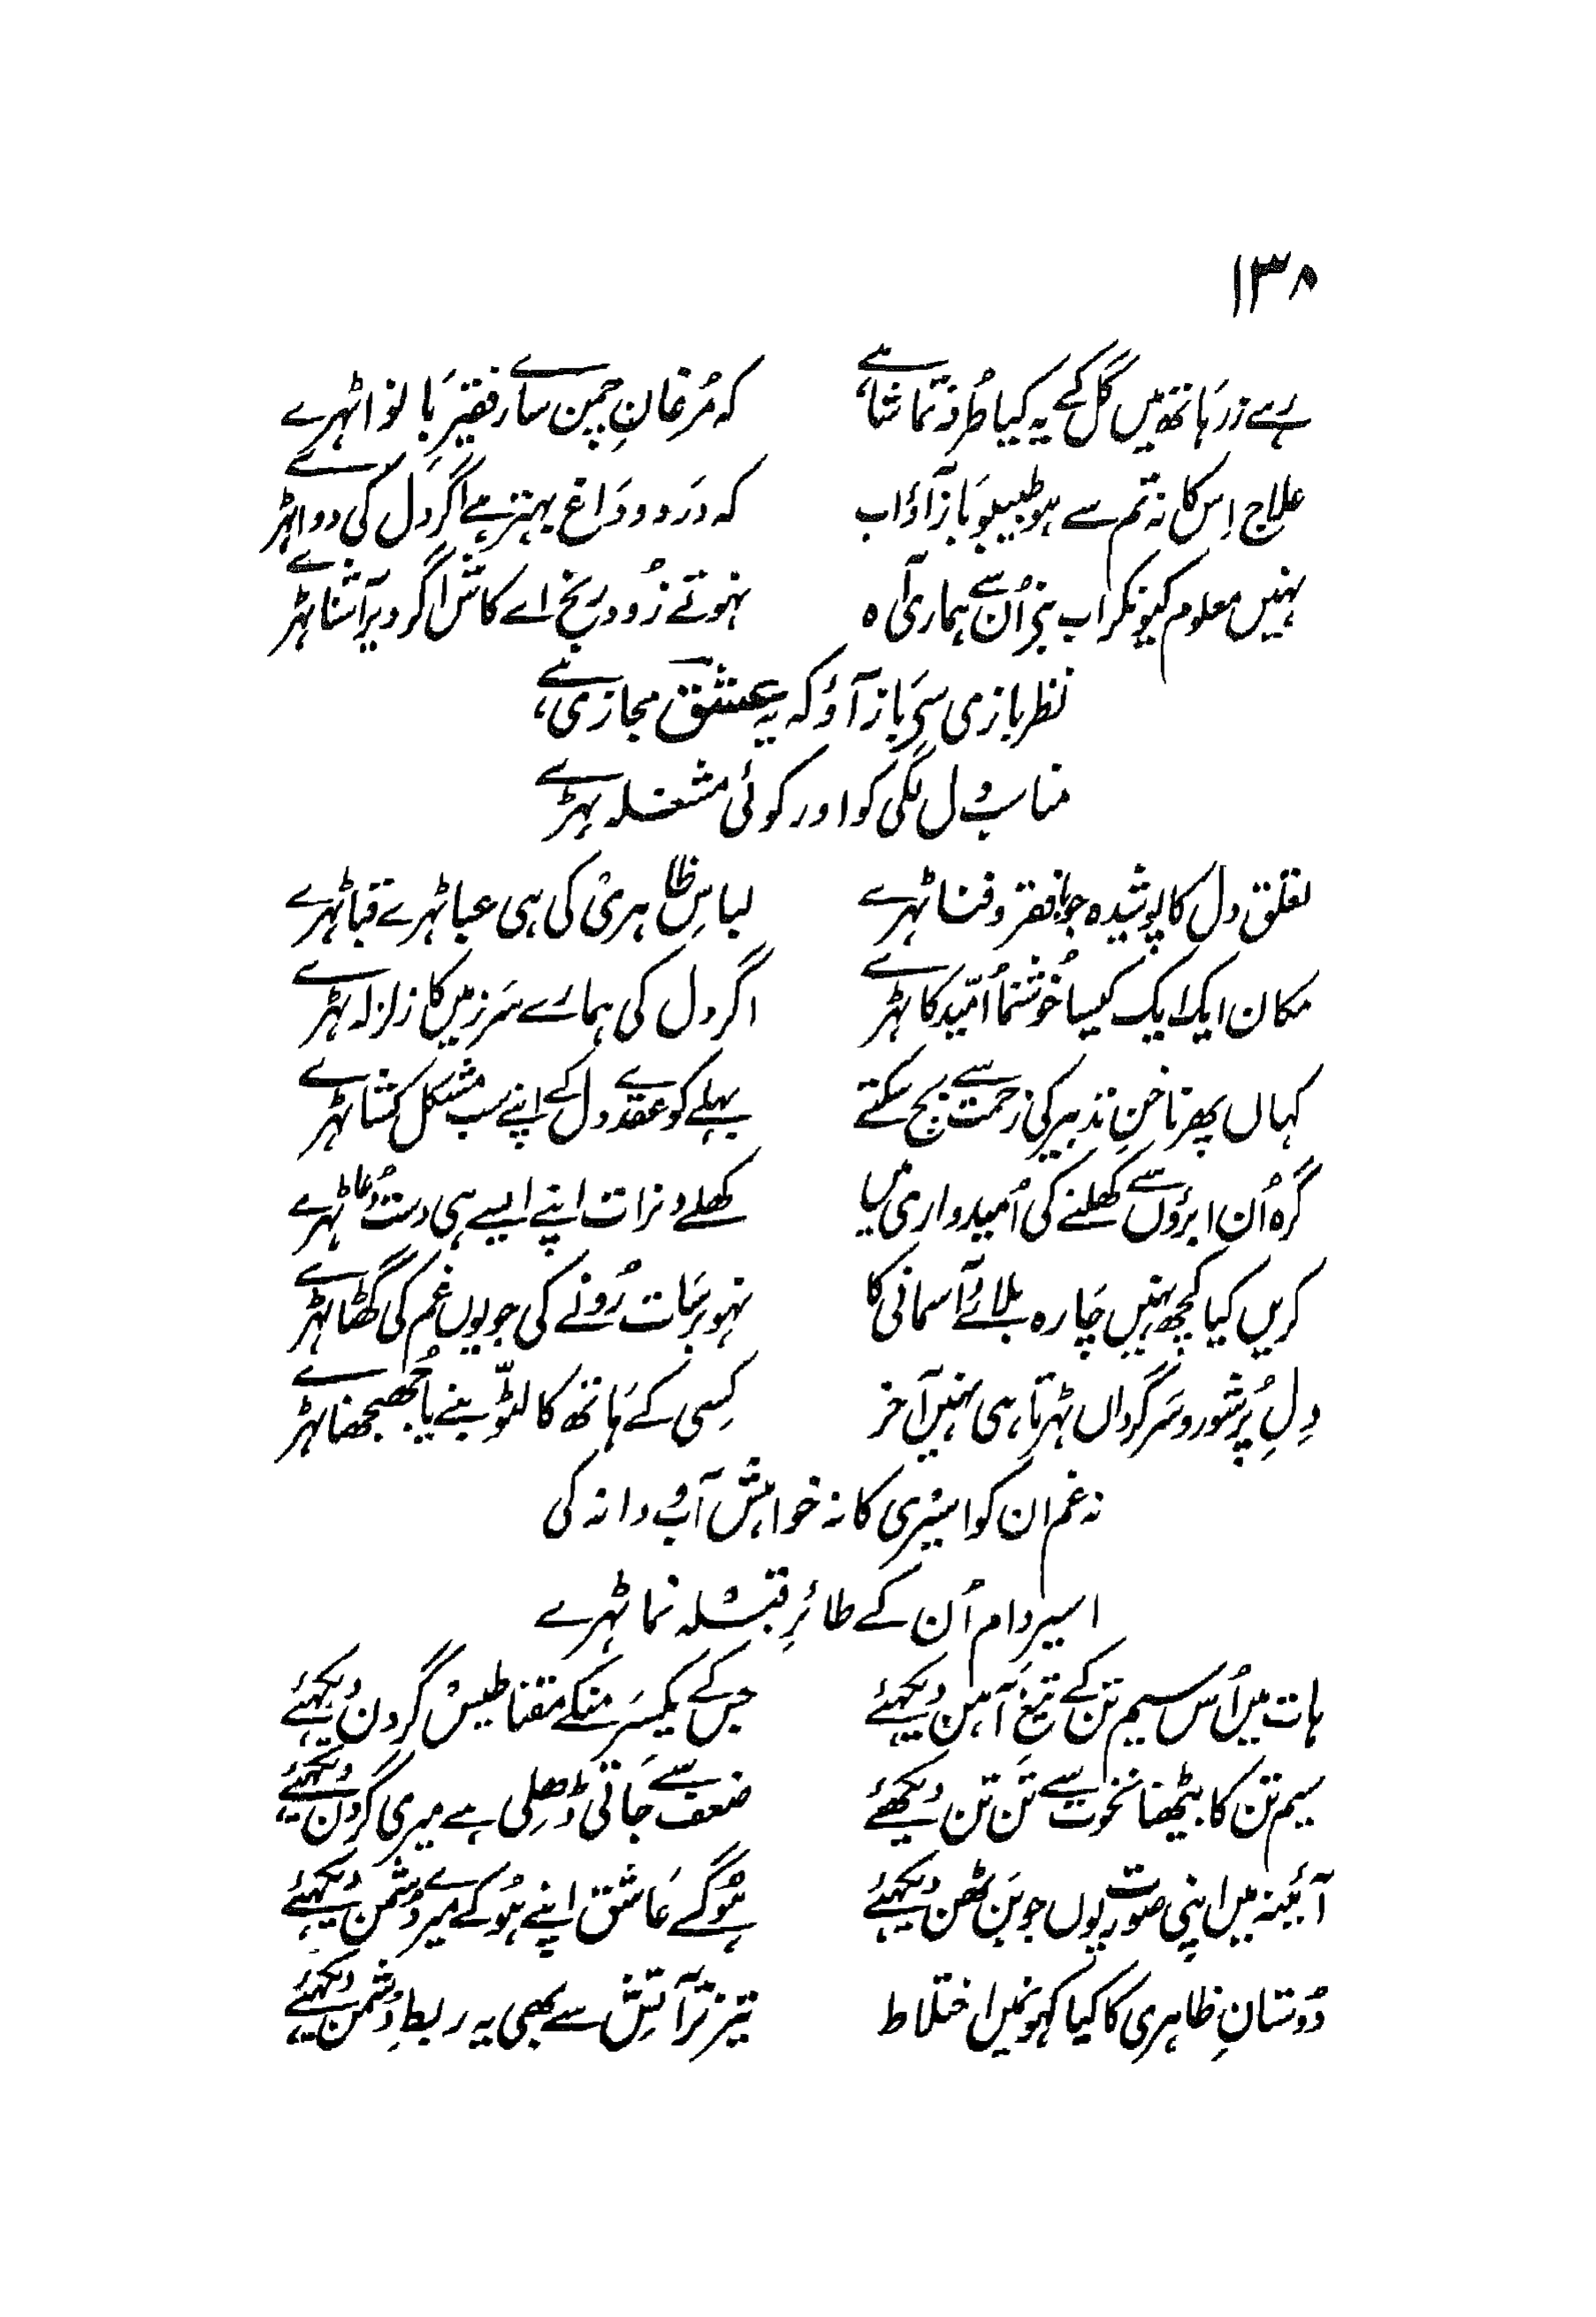 ۱۳۸
رہے زر ہاتھ میں گل کے یہ کیا طُرفہ تماشا ہے کہ مُرغانِ چمن سارے فقیرِ بَا نوا ٹہرے
علاج اِس کا نہ تم سے ہو طبیبو بَاز آؤ اب کہ دَرد و دَاغ بہتر ہے اگر دَل کی دوا ٹہرے
نہیں معلوم کیونکر اب بنے اُن سے ہماری آہ نہوتے زُود رنج اے کاش اگر دیر آشنا ٹہرے
نظر بازی سے بَاز آؤ کہ یہ عشق مجازی ہے
مناسب دل لگی کو اور کوئی مشغلہ ٹہرے
تعلق دل کا پوشیدہ جو با فقر و فنا ٹہرے لباسِ ظاہری کی ہی عبا ٹہرے قبا ٹہرے
مکان ایک ایک کیسا خُوشنما اُمّید کا ٹہرے اگر دل کی ہمارے سَرزمیں کا زلزلہ ٹہرے
کہاں پھر ناخنِ تدبیر کی زحمت سے بچ سکتے پہلے کو عقدے دل کے اپنے سب مشکل کشا ٹہرے
گرہ اُن ابرؤں سے کھلنے کی اُمیدواری میں کھلے دنرات اپنے ایسے ہی دست دُعا ٹہرے
کریں کیا کچھ نہیں چَارہ بلائے آسمانی کا نہو برسَات رُونے کی جو یوں غم کی گھٹا ٹہرے
دِلِ پُرشور و سَرگرداں ٹہرتا ہی نہیں آخر کِسی کے ہَاتھ کا لٹّو بنے یا جُھجھنا ٹہرے
نہ غم ان کو اسیری کا نہ خواہش آب و دانہ کی
اسیرِ دام اُن کے طائرِ قبلہ نما ٹہرے
ہات میں اُس سیم تن کے تیغِ آہن دیکہئے جس کے یکسَر منکے مقناطیس گردن دیکہئے
سیم تن کا بیٹھنا نخوت سے تَن تن دیکھئے ضعف سے جَاتی ڈھلی ہے میری گردن دیکہئے
آئینہ میں اپنی صورت یوں جو بَن ٹھن دیکہئے ہُوگے عَاشق اپنے ہُوکے میرے دشمن دیکہئے
دُوستانِ ظاہری کا کیا کہوں میں اختلاط تیز تر آتِش سے بھی یہ ربطِ دُشمن دیکہئے